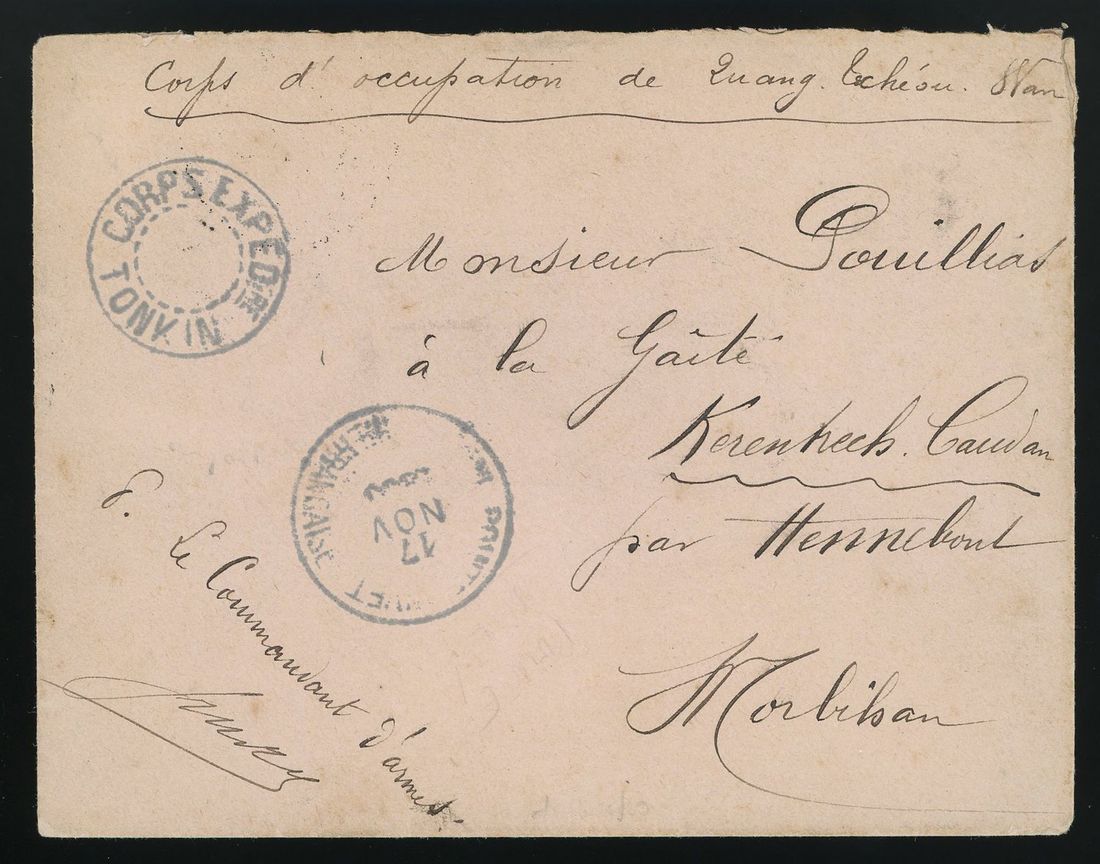 Corps d'occupation de Quang. Tchéou. Wan
CORPS EXPEDRE
TONKIN
Monsieur Pouillias
à la Gaîté
Kerentrech. Caudan
par Hennebont
Morbihan
17
NOV
FRANÇAISE
P. Le Commandant d'armes